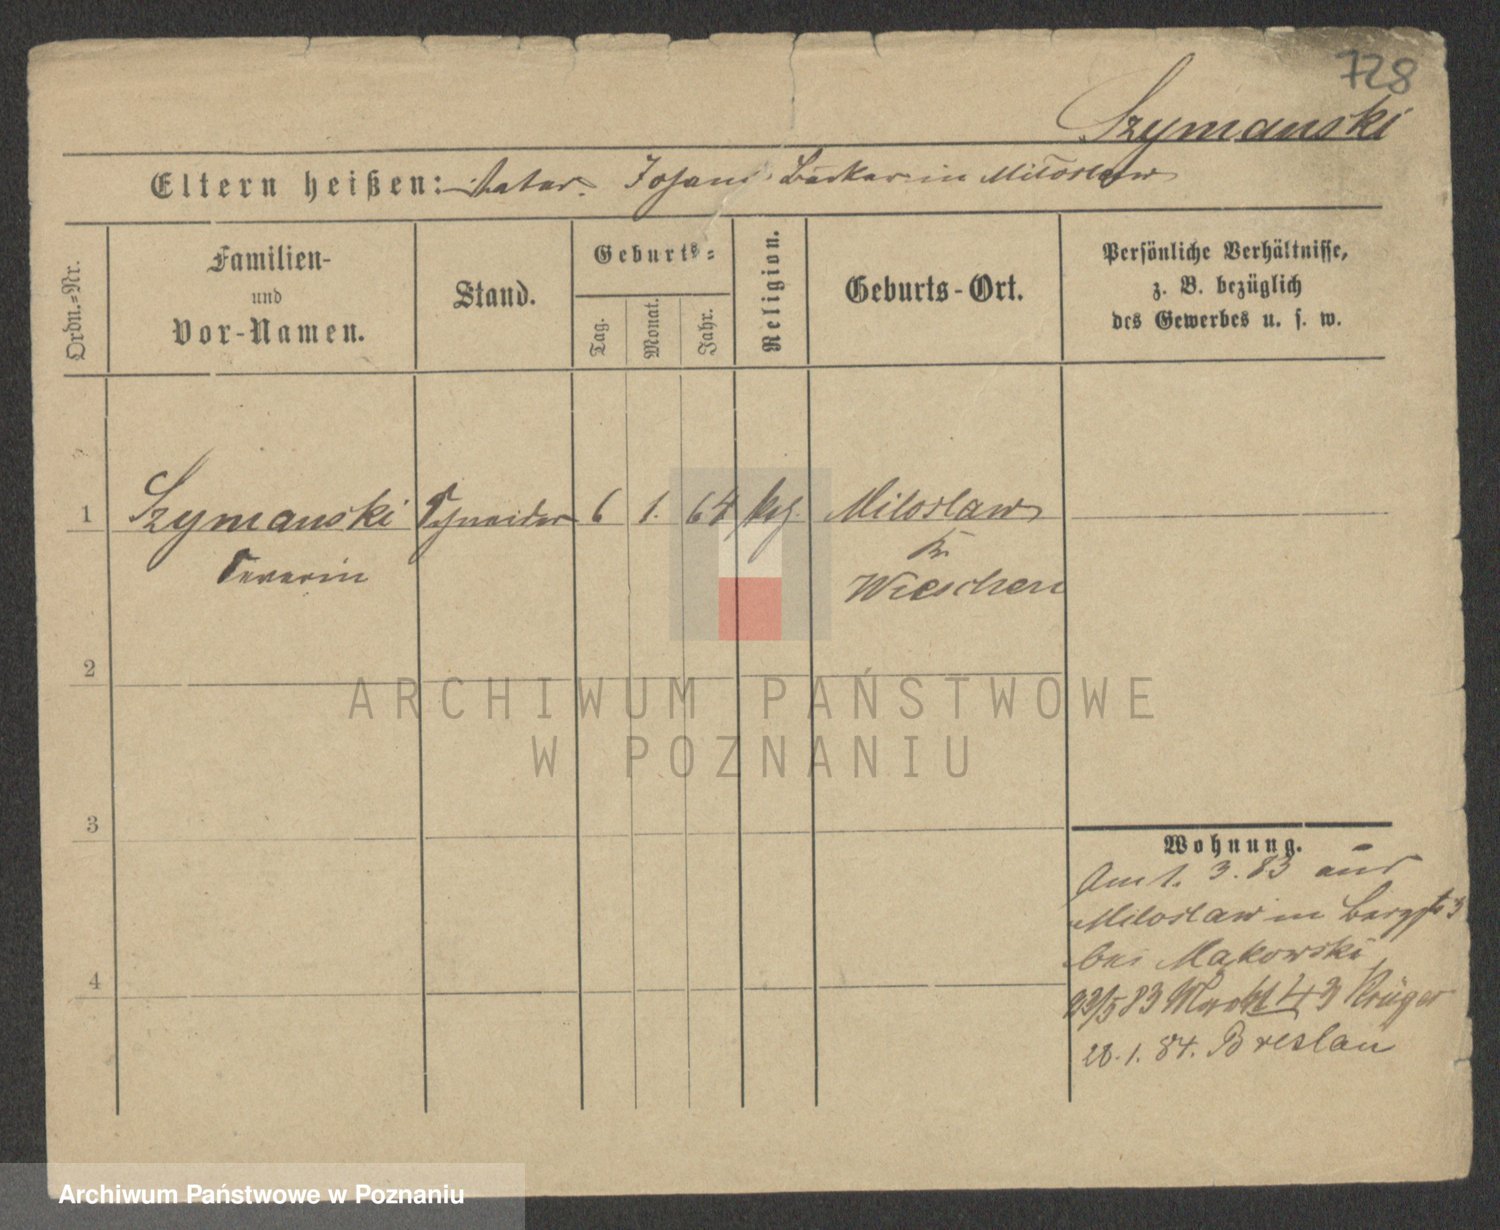 728
Szymanski
Eltern heißen: Vater. Johann Bäcker in Miloslaw
Ordn.=Nr.
Familien-
und
Vor-Namen.
Stand.
Geburts=
Tag.
Monat.
Jahr.
Religion.
Geburts-Ort.
Persönliche Verhältnisse,
z. B. bezüglich
des Gewerbes u. s. w.
1 Szymanski Schneider 6 1. 64 Miloslaw
Severin Kr.
Wreschen
2
3
4
Wohnung.
Am 1. 3. 83 aus
Miloslaw in Bergstr 3
bei Makowski
23/5 83 Markt 43 Krüger
28. 1. 84. Breslau
ARCHIWUM PAŃSTWOWE
W POZNANIU
Archiwum Państwowe w Poznaniu